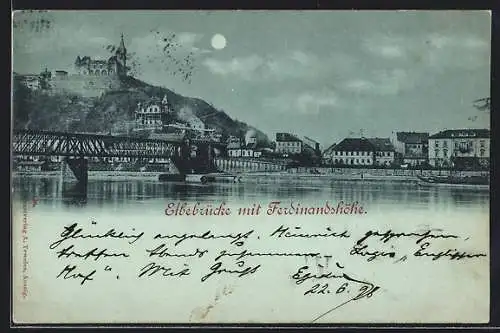 Elbebrücke mit Ferdinandshöhe.
Glücklich angelangt. Heinrich getroffen,
treffen Abends zusammen. Logis, Englischer
Hof". Mit Gruss Egidius
22.6.98